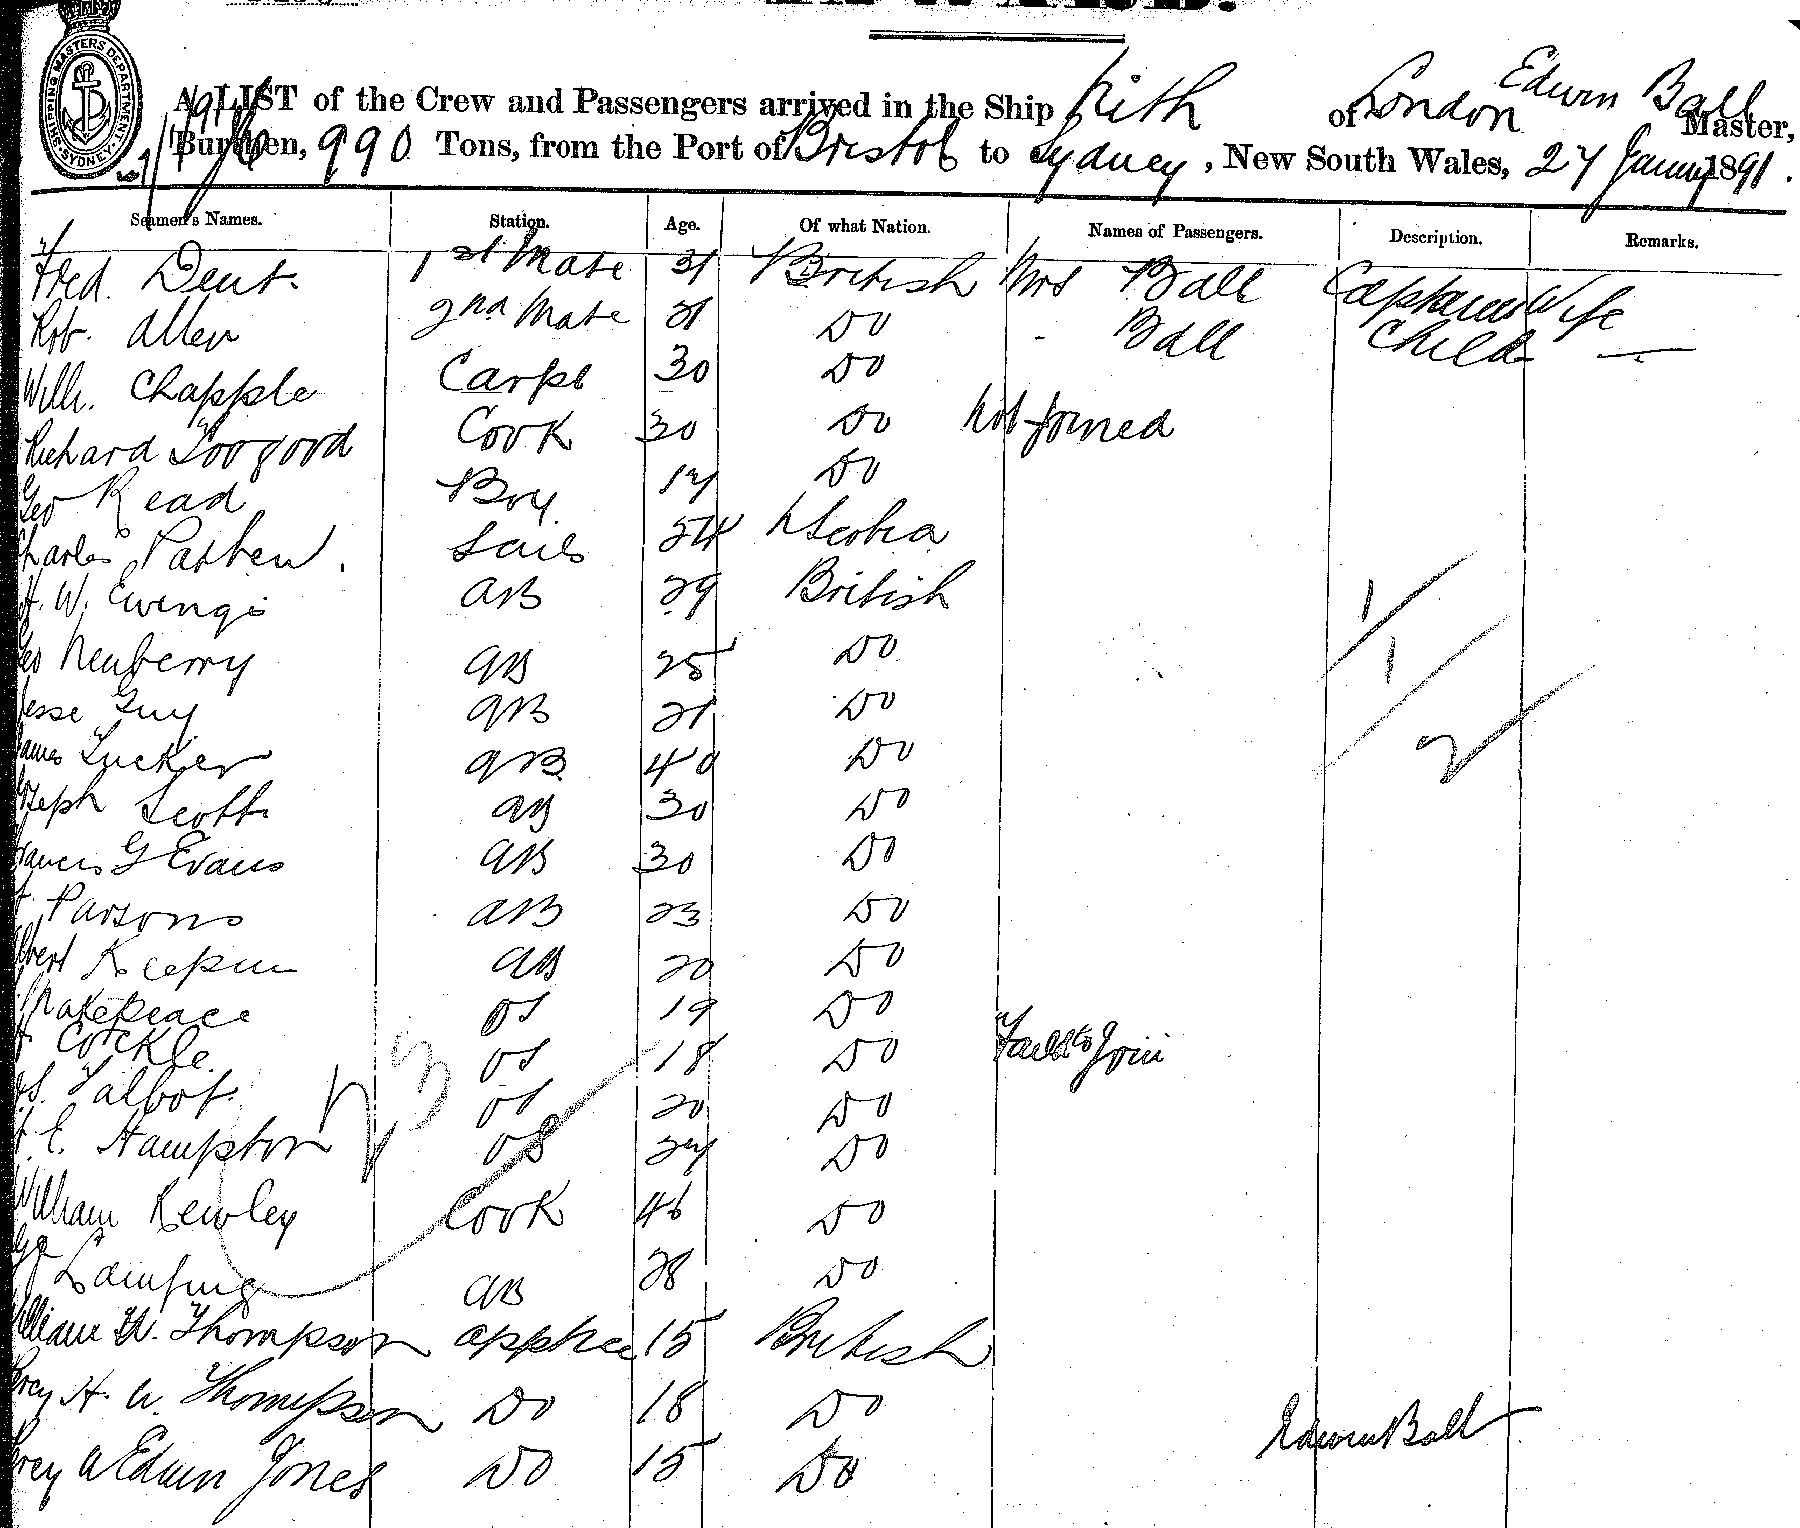 SHIPPING MASTERS DEPARTMENT SYDNEY
A LIST of the Crew and Passengers arrived in the Ship Nith of London Edwin Ball Master,
Burthen, 990 Tons, from the Port of Bristol to Sydney, New South Wales, 27 January 1891.
Seamen's Names. Station. Age. Of what Nation. Names of Passengers. Description. Remarks.
Fred. Dent. 1st Mate 31 British Mrs Ball Captains Wife
Rob. Allen 2nd Mate 21 Do - Ball Child —
Willm. Chapple Carpt 30 Do
Richard Toogood Cook 30 Do Not joined
Geo Read Boy 17 Do
Charles Pathen. Sails 54 N Scotia
H. W. Ewings AB 29 British
Geo Newberry AB 25 Do
Jesse Guy AB 21 Do
James Tucker AB 40 Do
Joseph Scott AB 30 Do
Francis G Evans AB 30 Do
Parsons AB 23 Do
Albert AB 20 Do
Makepeace OS 19 Do
Cockle OS 18 Do Failed to Join
Talbot. OS 20 Do
E. Hampton OS 24 Do
William Kewley Cook 46 Do
AB 28 Do
William W. Thompson Apptice 15 British
Percy H. W. Thompson Do 18 Do
Percy W Edwin Jones Do 15 Do
Edwin Ball
1
1
2
23